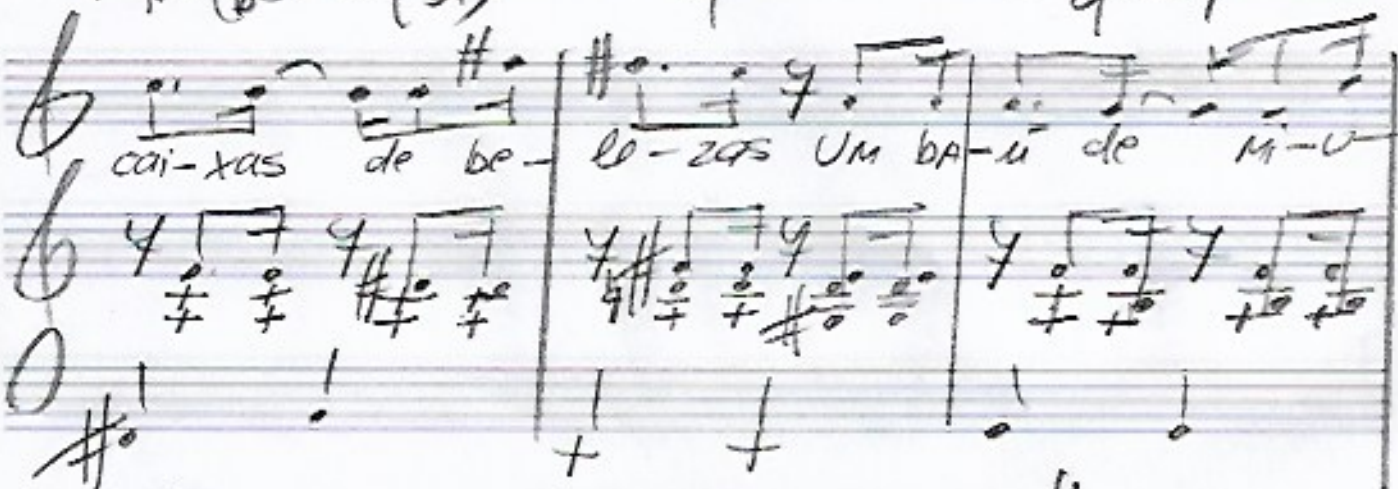 cai-xas de be- le-zas UM bA-ú de Mi-U-